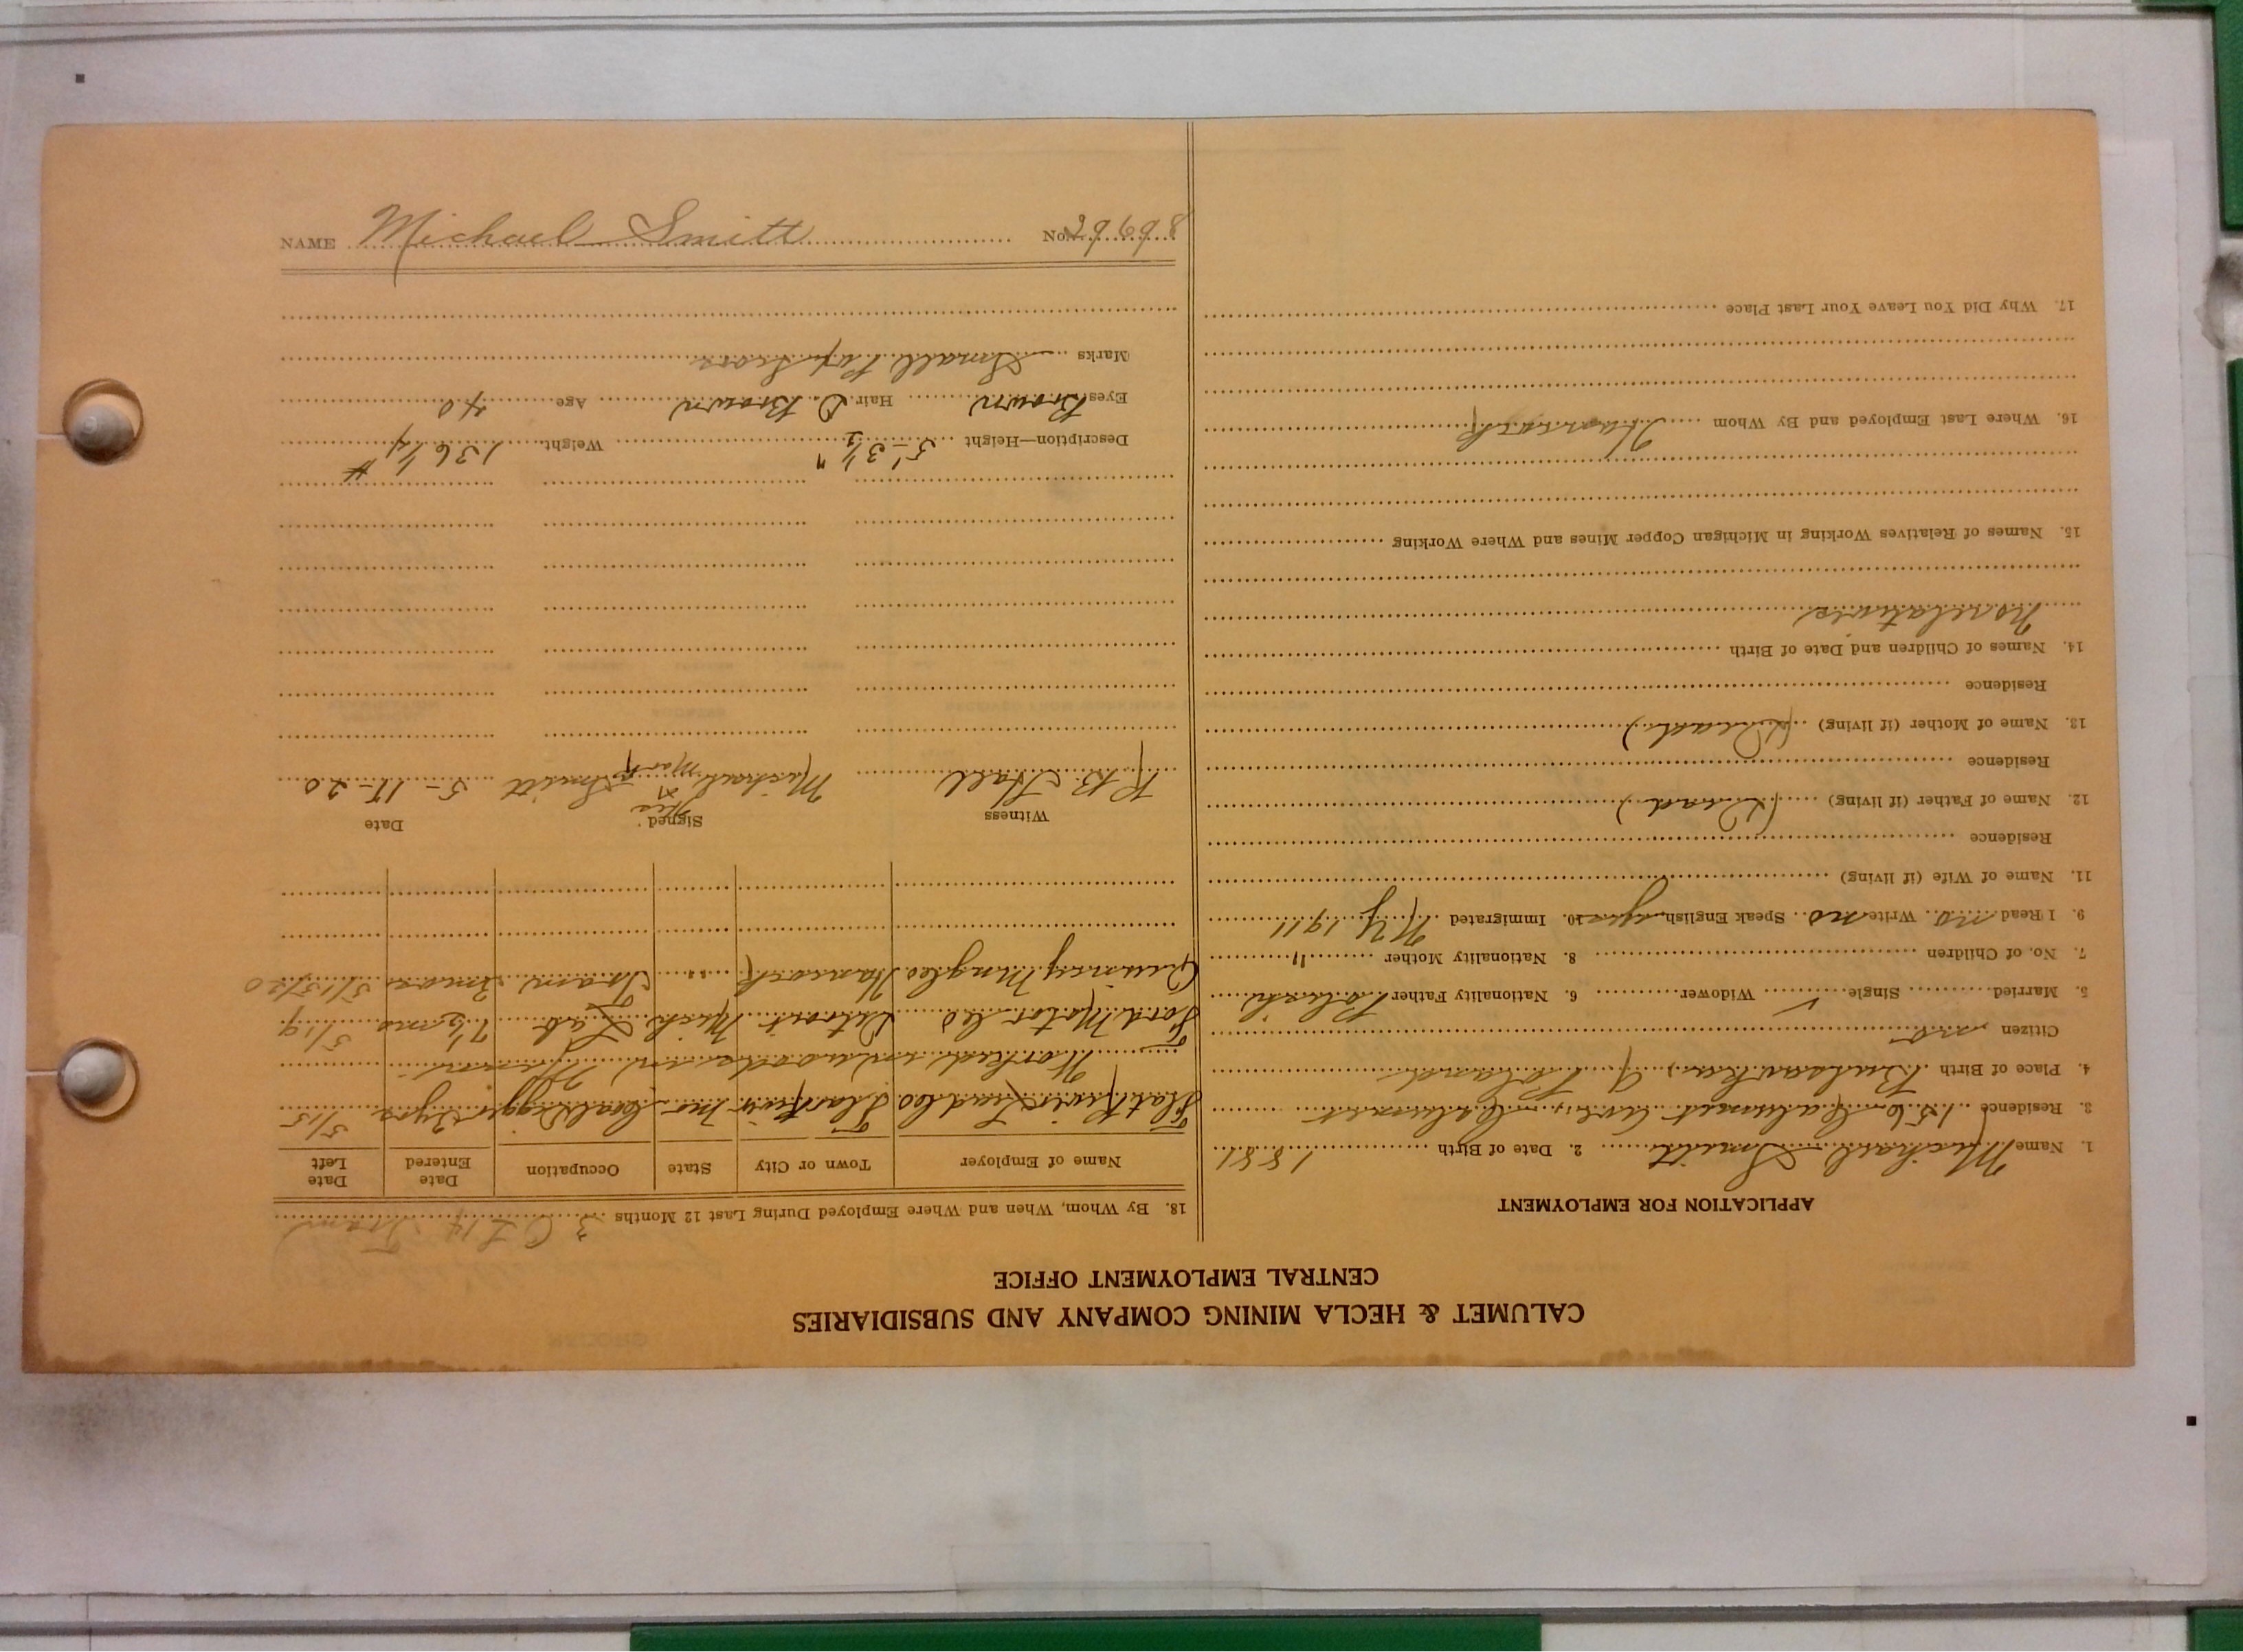 CALUMET & HECLA MINING COMPANY AND SUBSIDIARIES
CENTRAL EMPLOYMENT OFFICE
APPLICATION FOR EMPLOYMENT
1. Name Michael Smitt 2. Date of Birth 1881
3. Residence 156 Calumet Ave., Calumet
4. Place of Birth Poland
Citizen no
5. Married Single ✓ Widower 6. Nationality Father Polish
7. No. of Children 8. Nationality Mother "
9. I Read no Write no Speak English yes 10. Immigrated NY 1911
11. Name of Wife (if living)
Residence
12. Name of Father (if living) (Dead)
Residence
13. Name of Mother (if living) (Dead)
Residence
14. Names of Children and Date of Birth
No relatives
15. Names of Relatives Working in Michigan Copper Mines and Where Working
16. Where Last Employed and By Whom Hancock
17. Why Did You Leave Your Last Place
18. By Whom, When and Where Employed During Last 12 Months 3 C I 14 Tram
Name of Employer Town or City State Occupation Date Entered Date Left
Flat River Lead Co Flat River Mo 2 yrs 5/15
Worked in
Ford Motor Co Detroit Mich Lab 7½ mo 5/19
Quincy Mng Co Hancock " Tram 3 mos 5/15/20
Witness Signed Date
R B Hall Michael his x mark Smitt 5-17-20
Description—Height 5' 3½" Weight 136¼ #
Eyes Brown Hair D. Brown Age 40
Marks Small Pox Scars
NAME Michael Smitt No. 29698